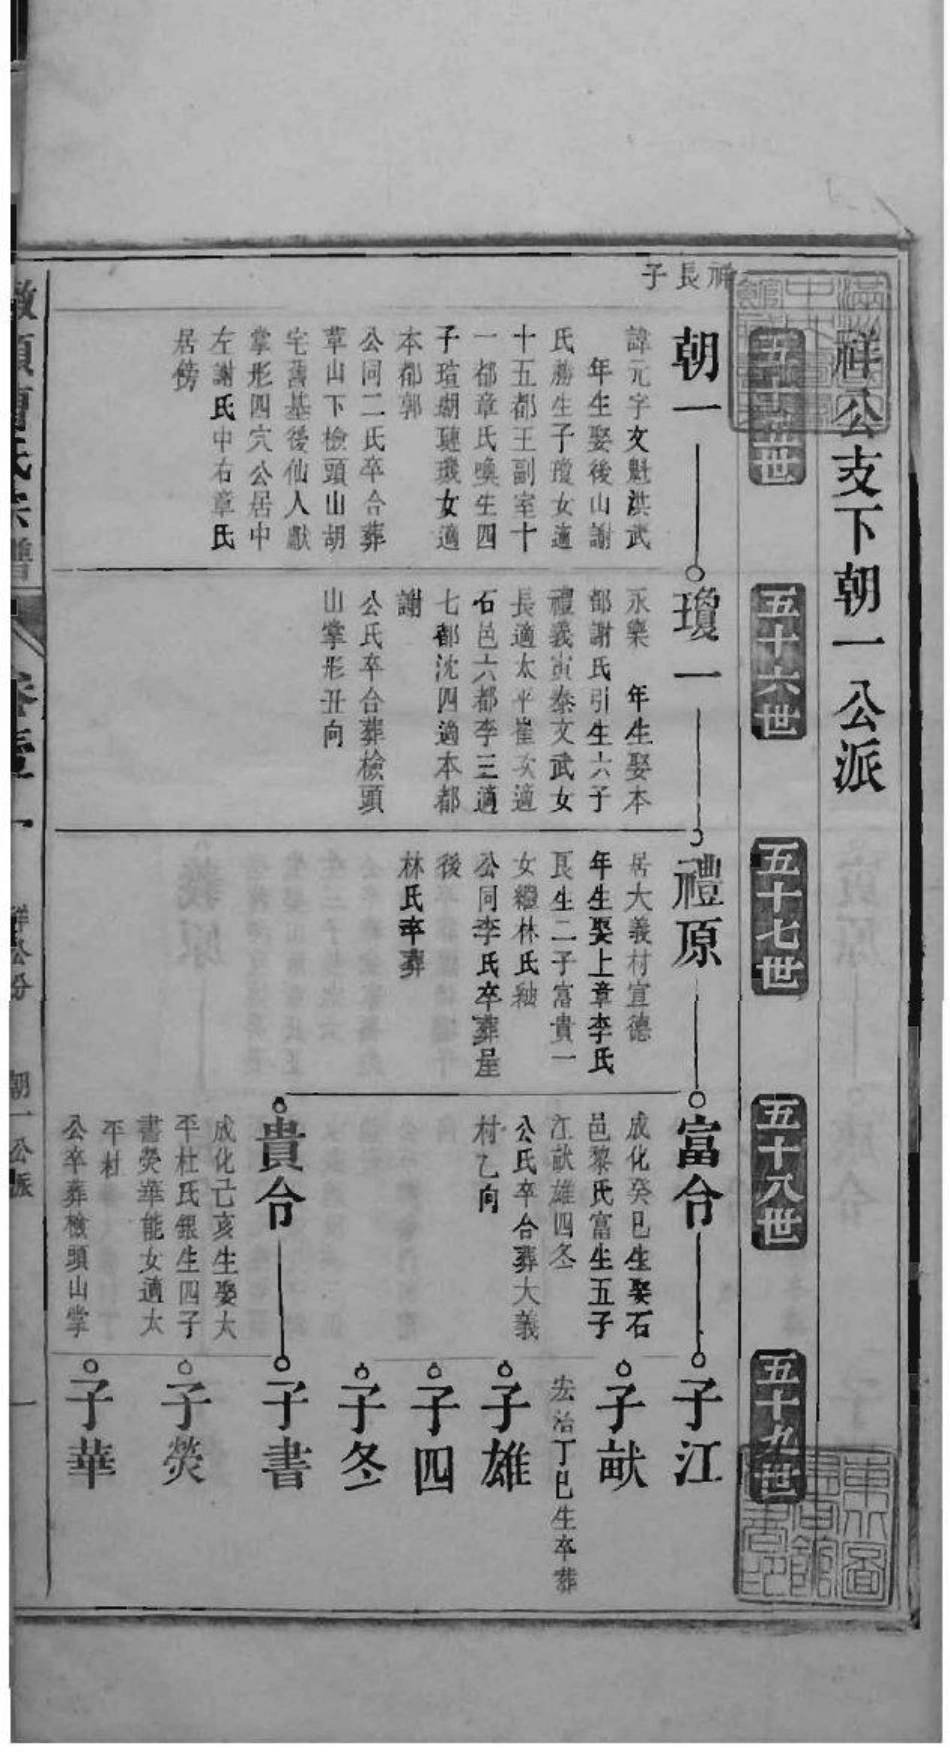 祥公支下朝一公派
五十五世
五十六世
五十七世
五十八世
五十九世
祥長子
朝一
諱元字文魁洪武
年生娶後山謝
氏勝生子瓊女適
十五都王副室十
一都章氏喚生四
子瑄瑚璉璣女適
本都郭
公同二氏卒合葬
草山下檢頭山胡
宅舊基後仙人獻
掌形四穴公居中
左謝氏中右章氏
居傍
瓊一
永樂　年生娶本
都謝氏引生六子
禮義寅泰文武女
長適太平崔次適
石邑六都李三適
七都沈四適本都
謝
公氏卒合葬檢頭
山掌形丑向
禮原
居大義村宣德
年生娶上章李氏
艮生二子富貴一
女繼林氏釉
公同李氏卒葬屋
後
林氏卒葬
富令
成化癸巳生娶石
邑黎氏富生五子
江猷雄四冬
公氏卒合葬大義
村乙向
貴令
成化己亥生娶大
平杜氏銀生四子
書熒華能女適太
平杜
公卒葬檢頭山掌
子江
子猷
宏治丁巳生卒葬
子雄
子四
子冬
子書
子熒
子華
嶺曹氏宗譜
卷壹
祥公分
朝一公派
一